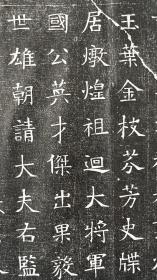 王葉金枝芬芳史牒
居燉煌祖迴大將軍
國公英才傑出果毅
世雄朝請大夫右監